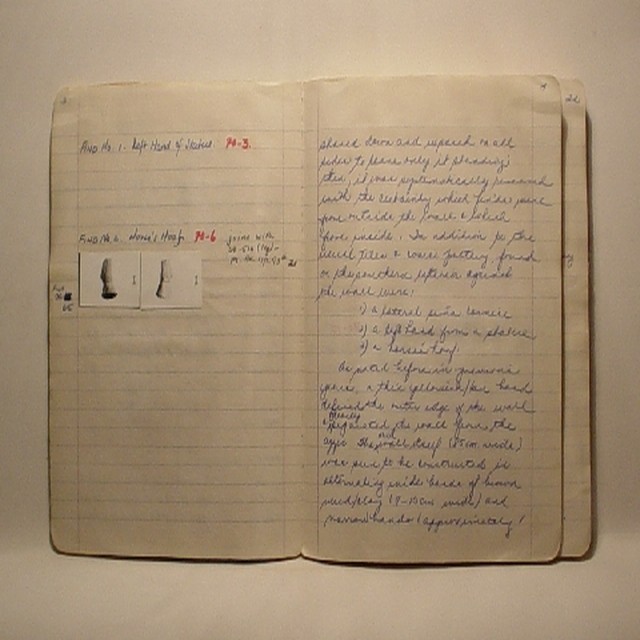 Find No. 1. Left Hand of Statue. 70-3.
Find No. 2. Horse's Hoof. 70-6
joins with
shaved down and exposed on all
sides to leave only it standing:
then, it was systematically removed
with the certainty which finds were
from outside the wall & which
from inside. In addition to the
usual tiles & coarse pottery found
on the southern exterior against
the wall were:
1) a lateral sima cornice
2) a left hand from a statue
3) a horse's hoof.
As noted before in previous
years, a thin yellowish/tan band
defined the outer edge of the wall
clearly
separated the wall from the
The wall itself (85 cm. wide)
was seen to be constructed in
alternating wide bands of brown
mud/clay (9-15 cm wide) and
narrow bands (approximately 1